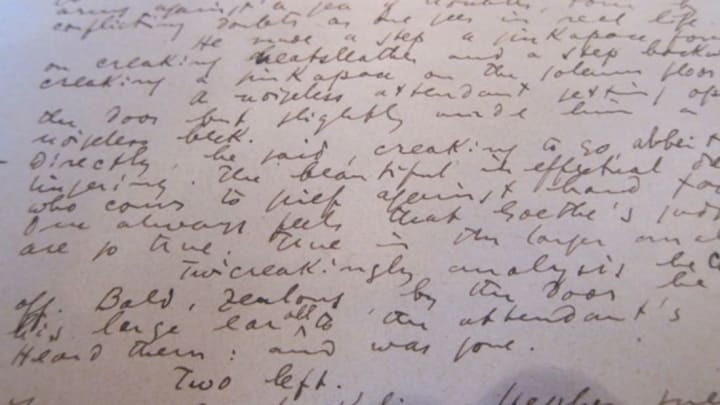 arms against a sea of troubles, torn by
conflicting doubts as one sees in real life.
He made a step a sinkapace forw
on creaking neatsleather and a step backw
creaking a sinkapace on the solemn floor
A noiseless attendant setting op
the door but slightly made him a
noiseless beck.
Directly, he said, creaking to go, albeit
lingering. The beautiful ineffectual d
who comes to grief against hard fa
One always feels that Goethe's jud
are so true. True in the larger anal
Twicreakingly analysis he c
off. Bald, zealous by the door he
his large ear all to the attendant's
Heard them: and was gone.
Two left.